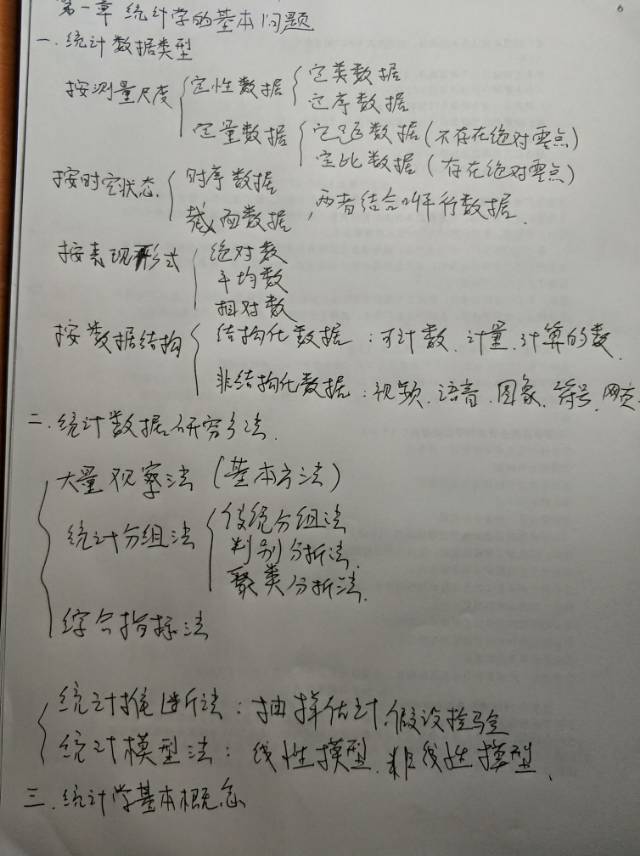 第一章 统计学的基本问题
6
一、统计数据类型
按测量尺度
定性数据
定类数据
定序数据
定量数据
定距数据(不存在绝对零点)
定比数据(存在绝对零点)
按时空状态
时序数据
截面数据
,两者结合叫平行数据.
按表现形式
绝对数
平均数
相对数
按数据结构
结构化数据:可计数、计量、计算的数
非结构化数据:视频、语音、图象、符号、网页
二、统计数据研究方法.
大量观察法(基本方法)
统计分组法
传统分组法
判别分析法.
聚类分析法.
综合指标法
统计推断法:抽样估计、假设检验
统计模型法:线性模型、非线性模型、
三、统计学基本概念